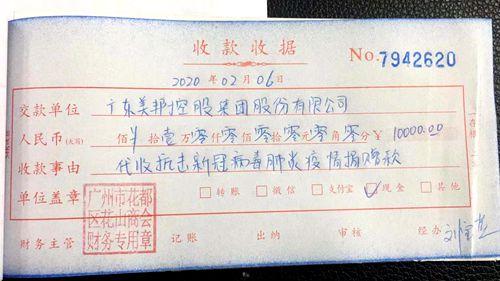 收款收据
No.7942620
2020 年 02 月 06 日
交款单位 广东美邦控股集团股份有限公司
人民币(大写) 佰 拾壹万零仟零佰零拾零元零角零分 ¥ 10000.00
收款事由 代收抗击新冠病毒肺炎疫情捐赠款
单位盖章 □ 转账 □ 微信 □ 支付宝 ☑ 现金 □ 其他
广州市花都
区花山商会
财务专用章
财务主管 记账 出纳 审核 经办